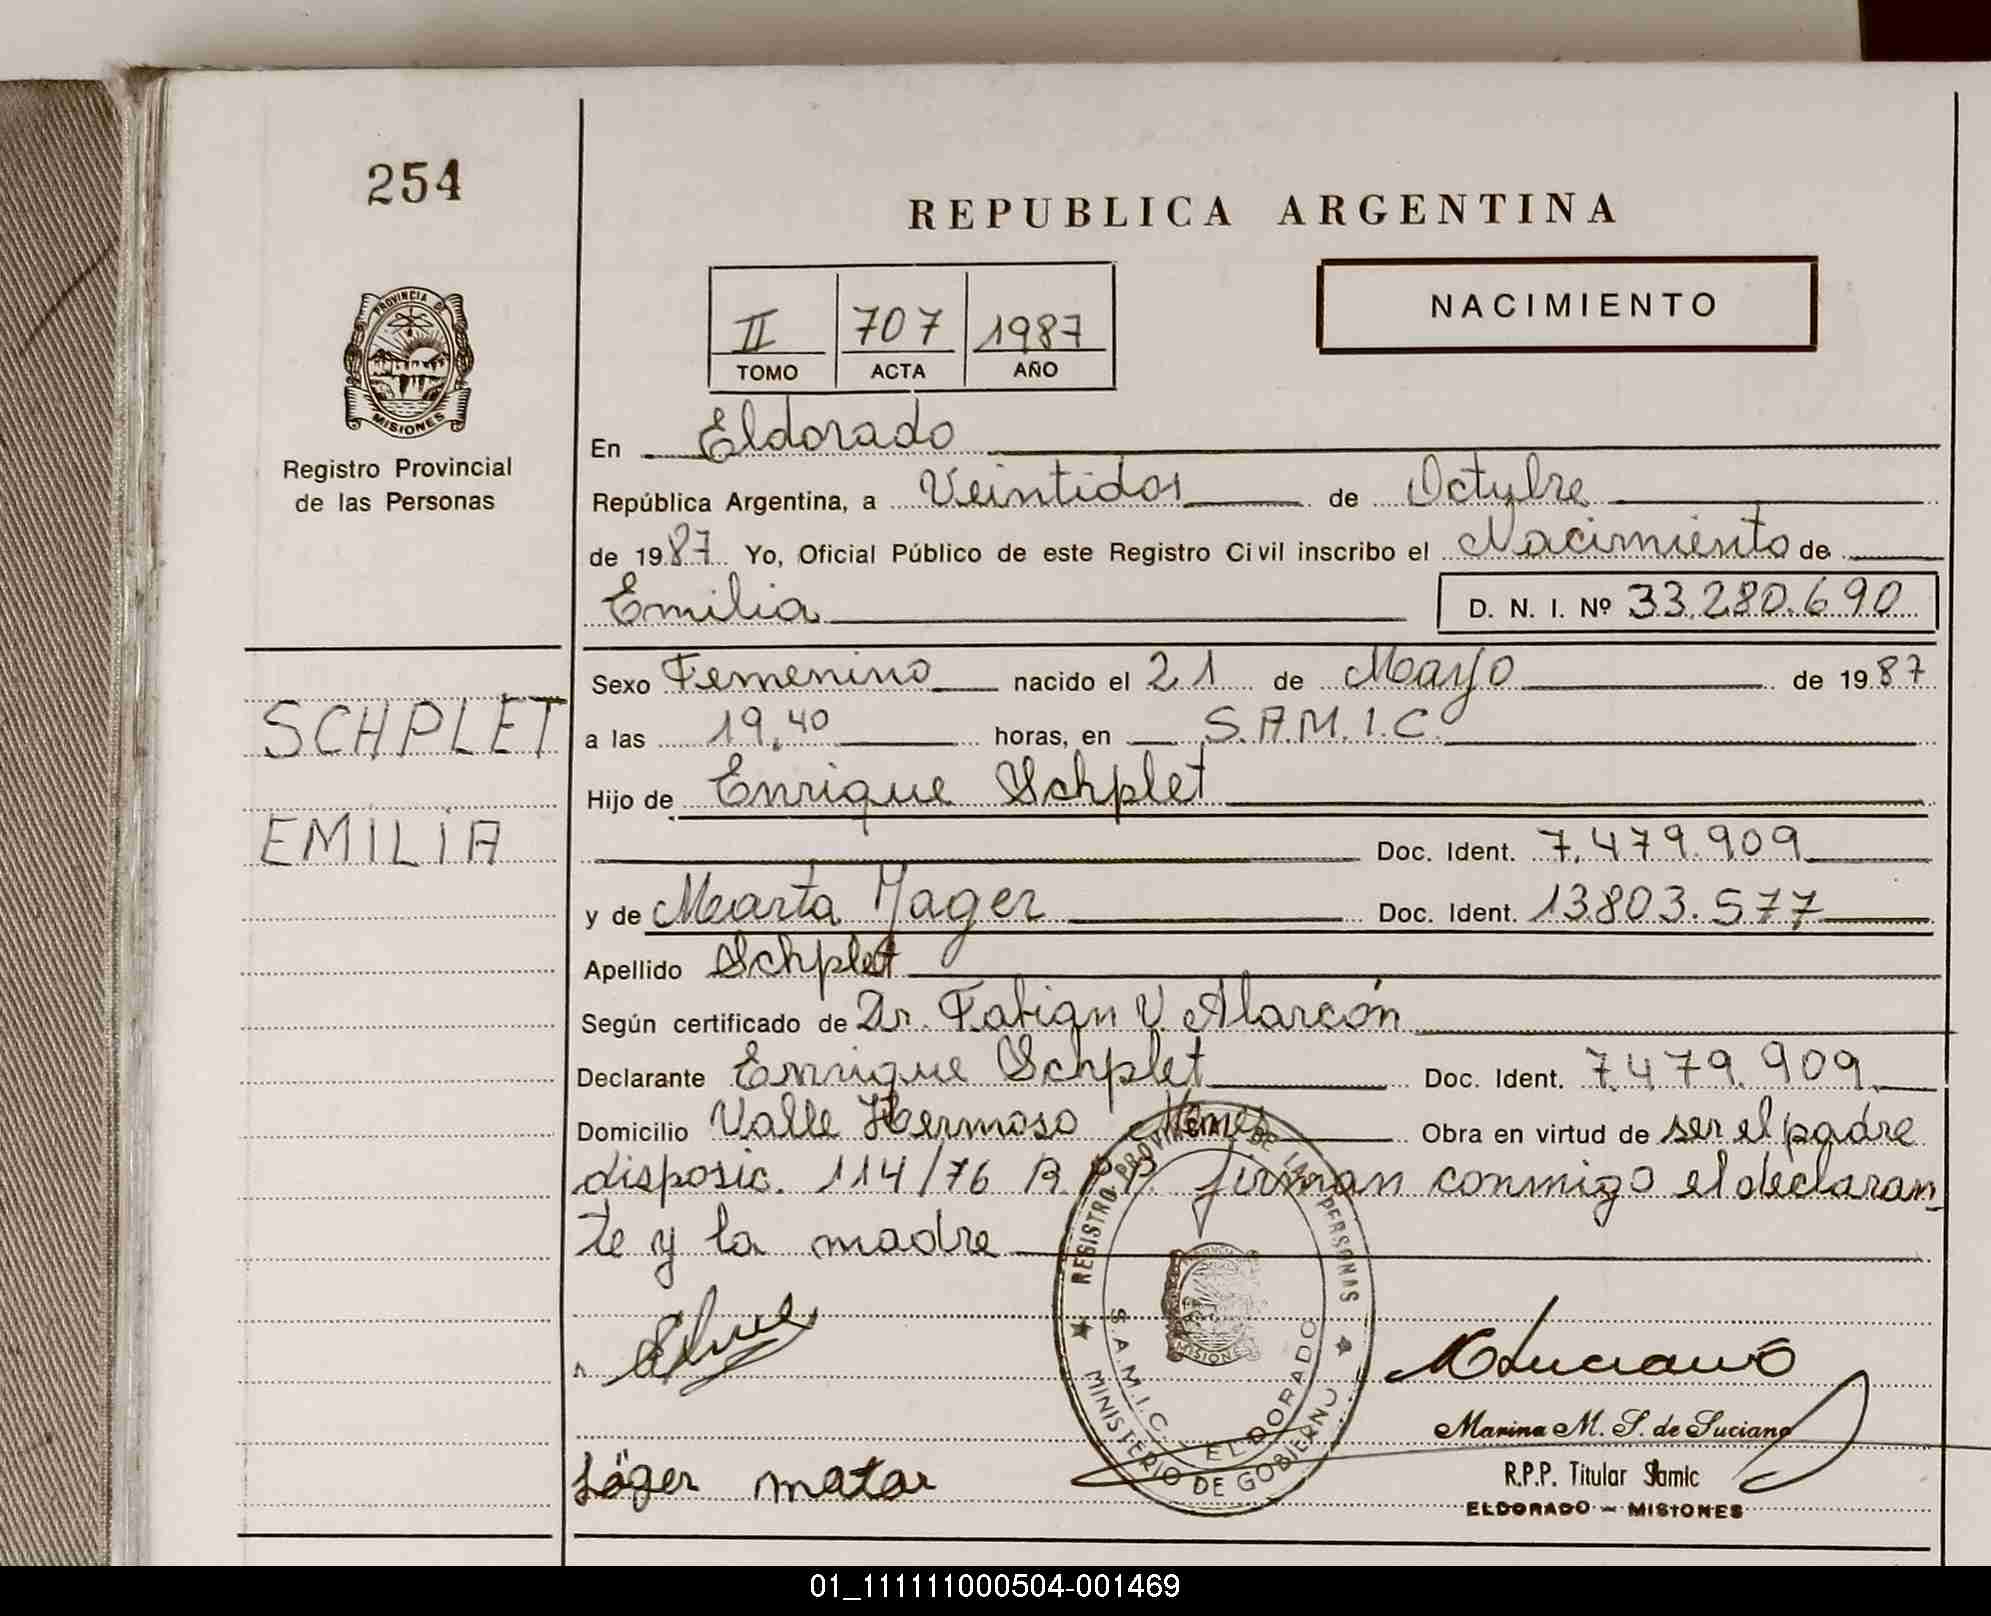 254
REPUBLICA ARGENTINA
PROVINCIA DE
MISIONES
Registro Provincial
de las Personas
II 707 1987
TOMO ACTA AÑO
NACIMIENTO
En Eldorado
República Argentina, a Veintidos de Octubre
de 1987 Yo, Oficial Público de este Registro Civil inscribo el Nacimiento de
Emilia D. N. I. Nº 33.280.690
Sexo Femenino nacido el 21 de Mayo de 1987
SCHPLET
a las 19,40 horas, en S.A.M.I.C.
Hijo de Enrique Schplet
EMILIA
Doc. Ident. 7.479.909
y de Marta Yager Doc. Ident. 13.803.577
Apellido Schplet
Según certificado de Dr. Fabian V. Alarcón
Declarante Enrique Schplet Doc. Ident. 7.479.909
Domicilio Valle Hermoso Obra en virtud de ser el padre
disposic. 114/76 R.P.P. firman conmigo el declaran
te y la madre
REGISTRO PROVINCIAL DE LAS PERSONAS
MINISTERIO DE GOBIERNO
S.A.M.I.C. ELDORADO
MISIONES
Luciano
Marina M. S. de Luciano
R.P.P. Titular Samic
ELDORADO - MISIONES
01_111111000504-001469